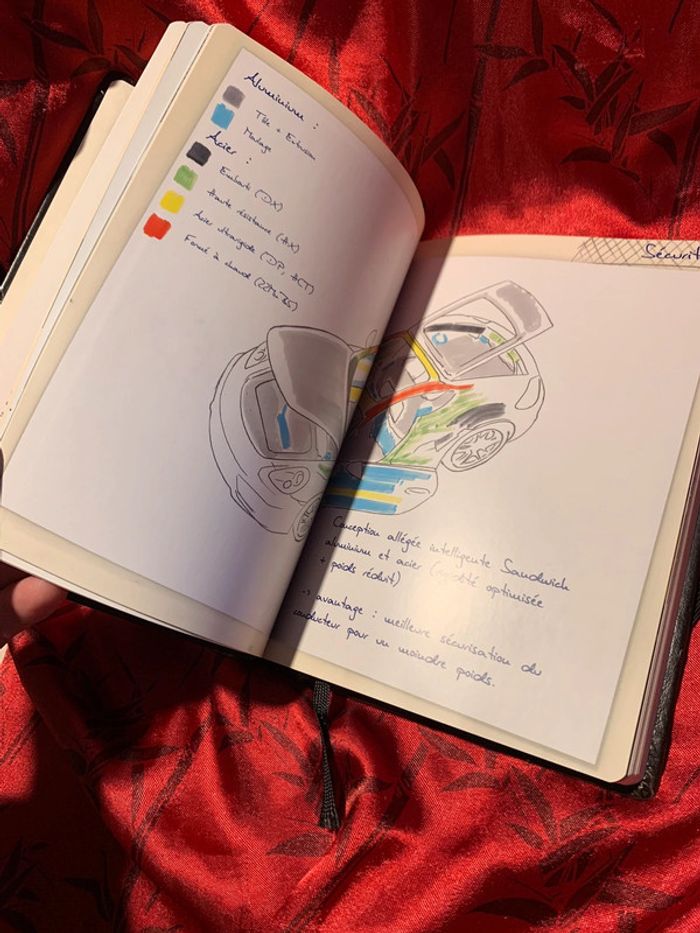 Aluminium :
Tôle + Extrusion
Moulage
Acier :
Emboutis (DX)
Haute résistance (HX)
Acier ultrarigide (DP, ACT)
Formé à chaud (22MnB5)
Sécurit
Conception allégée intelligente Sandwich
aluminium et acier (optimisée
+ poids réduit)
-> avantage : meilleure sécurisation du
conducteur pour un moindre poids.